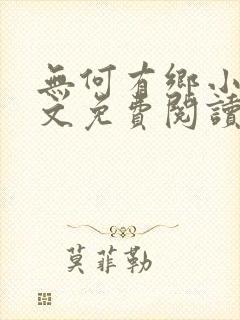 無何有鄉小
文免費閱讀
莫菲勒